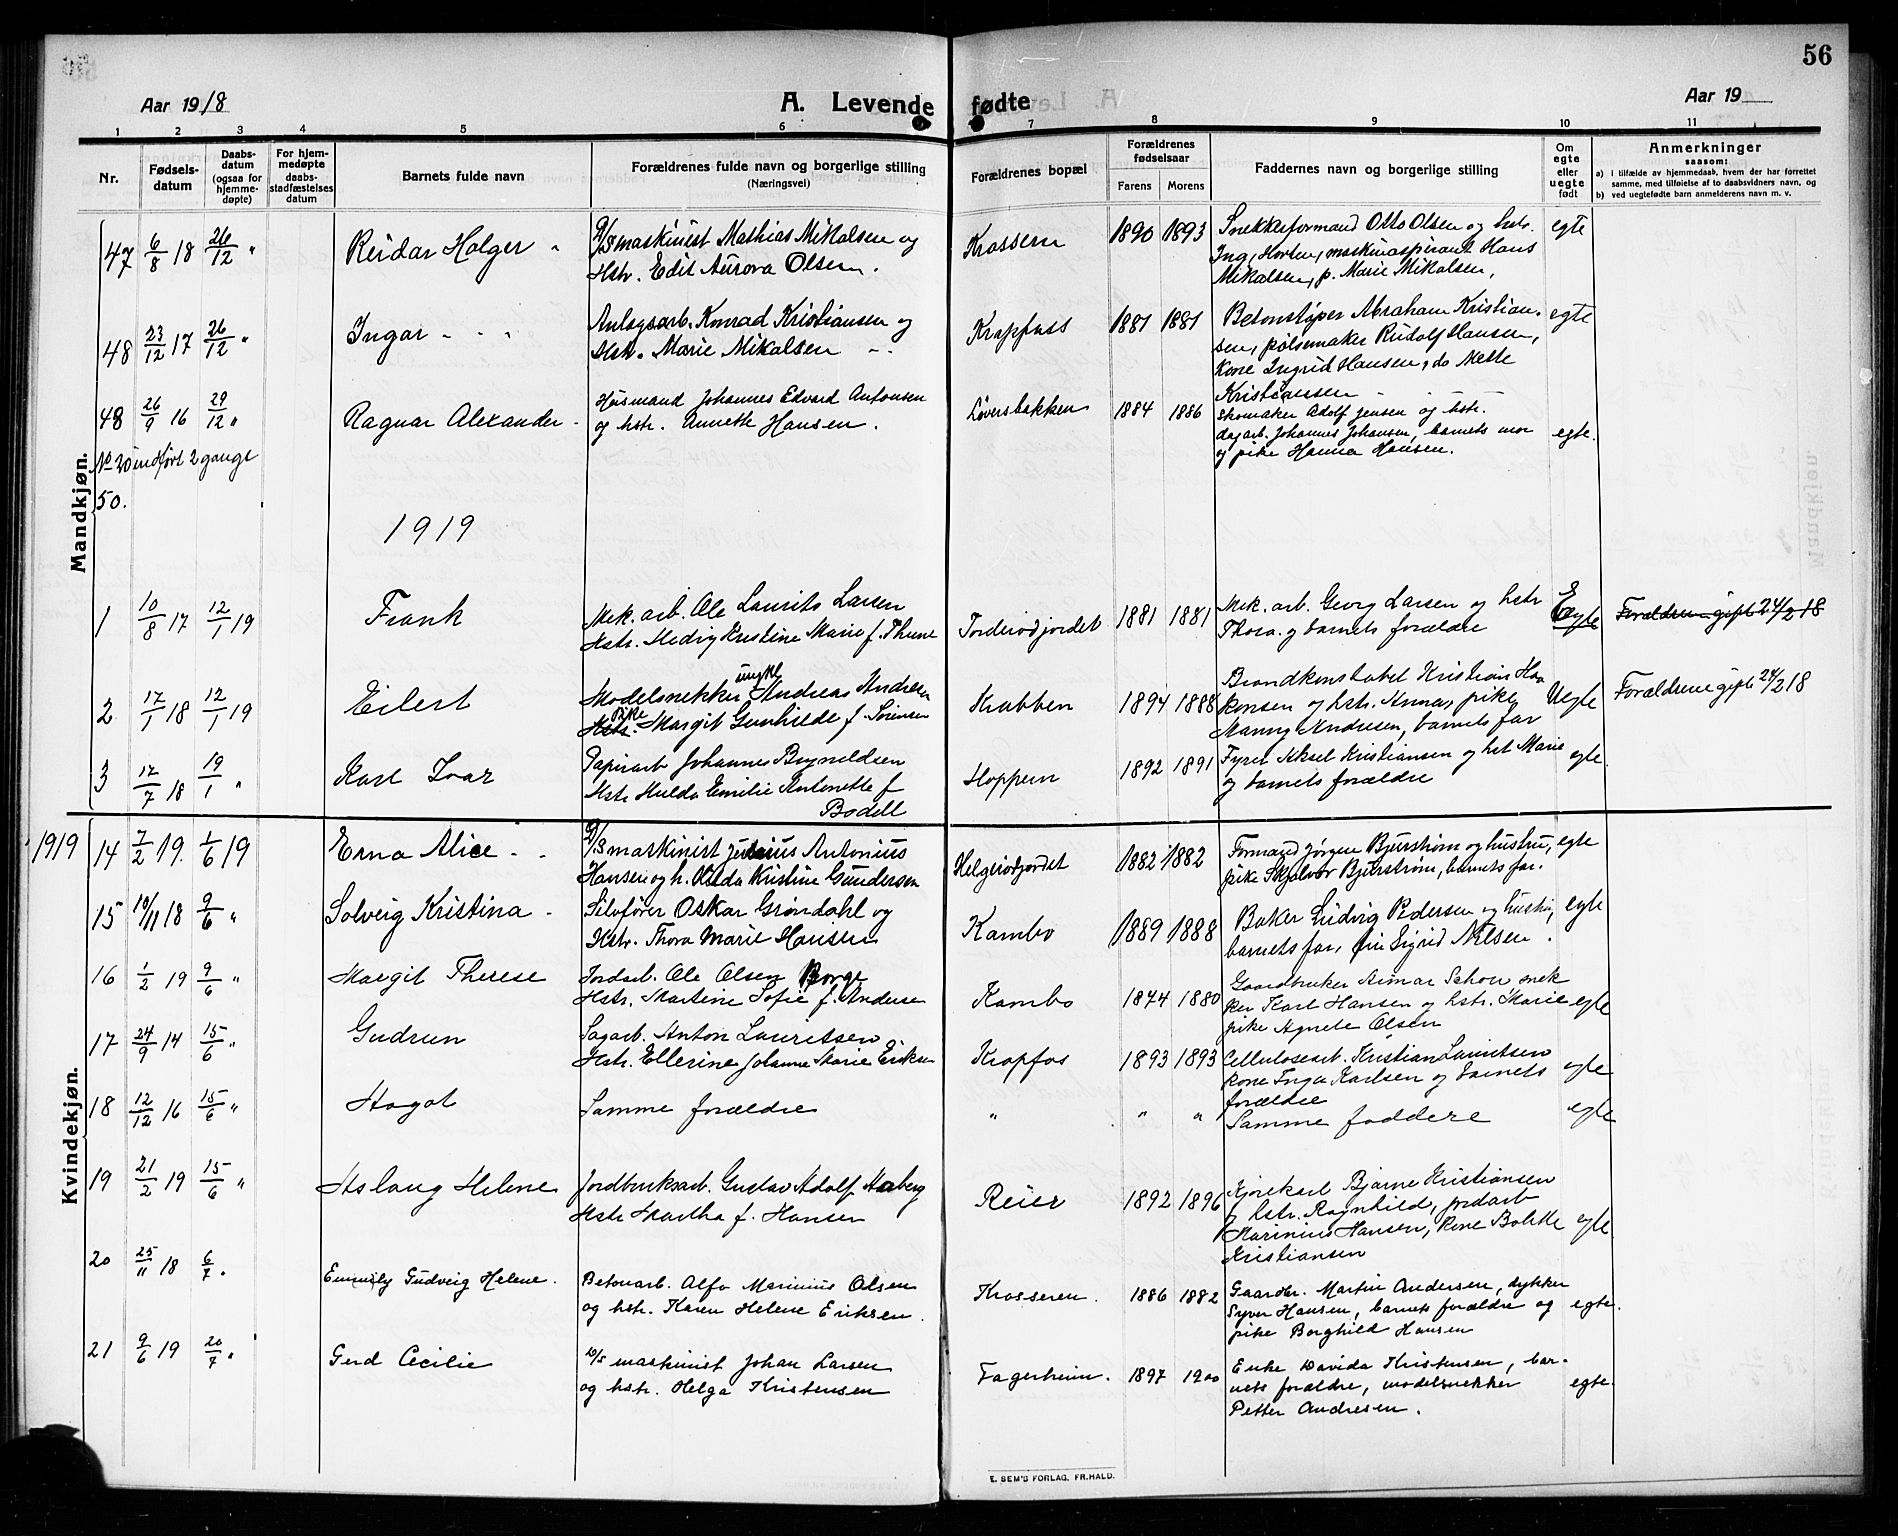 56
Aar 1918 A. Levende fødte Aar 19
1 2 3 4 5 6 7 8 9 10 11
Nr.
Fødsels-
datum
Daabs-
datum
(ogsaa for
hjemme-
døpte)
For hjem-
medøpte
daabs-
stadfæstelses
datum
Barnets fulde navn
Forældrenes fulde navn og borgerlige stilling
(Næringsvei)
Forældrenes bopæl
Forældrenes
fødselsaar
Farens Morens
Faddernes navn og borgerlige stilling
Om
egte
eller
uegte
født
Anmerkninger
saasom:
a) i tilfælde av hjemmedaab, hvem der har forrettet
samme, med tilføielse af to daabsvidners navn, og
b) ved uegtefødte barn anmelderens navn m. v.
Mandkjøn.
47 6/8 18 26/12 " Reidar Holger
D/S maskinist Mathias Mikalsen og
Hstr. Edit Aurora Olsen.
Krosseren 1890 1893
Snekkerformand Otto Olsen og hstr.
Ing, Horten, maskinaspirant Hans
Mikalsen, p. Marie Mikalsen,
egte
48 23/12 17 26/12 " Ingar
Anlægsarb. Konrad Kristiansen og
Hstr. Marie Mikalsen
Krapfoss 1881 1881
Betonstøper Abraham Kristian-
sen, pølsemaker Rudolf Hansen,
Kone Ingrid Hansen, do Mette
Kristiansen
egte
48 26/9 16 29/12 " Ragnar Alexander
Husmand Johannes Edvard Antonsen
og hstr. Annette Hansen.
Løversbakken 1884 1886
Skomaker Adolf Jensen og hstr.
dagarb. Johannes Johansen, barnets mor
og pike Hanna Hansen.
egte.
No 20 indført 2 gange
50.
1919
1 10/8 17 12/1 19 Frank
Mek. arb. Ole Laurits Larsen
Hstr. Hedvig Kristine Marie f. Thune
Torderødjordet 1881 1881
Mek. arb. Georg Larsen og hstr
Thora og barnets forældre
Egte
Forældrene gift 24/2 18
2 17/1 18 12/1 19 Eilert
ungkl
Modelsnekker Andreas Andresen
pike
Hstr. Margit Gunhilde f. Sørensen
Krabben 1894 1888
Brandkonstabel Kristian Haa
konsen og hstr. Anna, pike
Nanny Andresen, barnets far
Uegte
Forældrene gift 24/2 18
3 17/7 18 19/1 " Karl Ivar
Papirarb Johannes Brynildsen
Hstr Hulda Emilie Antonette f
Bodell
Hoppern 1892 1891
Fyrb. Aksel Kristiansen og hst Marie
og barnets forældre
egte.
Kvindekjøn.
1919 14 7/2 19. 1/6 19 Erna Alice
D/S maskinist Julius Antonius
Hansen og h. Olilda Kristine Gundersen
Helgerødjordet 1882 1882
Formand Jørgen Bjurstrøm og hustru,
pike Skjalvor Bjurstrøm, barnets far.
egte
15 10/11 18 9/6 " Solveig Kristina
Silofører Oskar Grøndahl og
Hstr. Thora Marie Hansen
Kambo 1889 1888
Baker Ludvig Pedersen og hustru,
barnets far, fru Sigrid Nilsen.
egte
16 1/2 19 9/6 " Margit Therese
Jordarb. Ole Olsen Borge
Hstr. Martine Sofie f. Anderse
Kambo 1874 1880
Gaardbruker Aimar Schou snek
ker Karl Hansen og hstr. Marie
pike Agnete Olsen
egte
17 24/9 14 15/6 " Gudrun
Sagarb. Anton Lauritsen
Hstr. Ellerine Johanne Marie Eriksen
Krapfos 1893 1893
Cellulosearb. Kristian Lauritsen
kone Inga Karlsen og barnets
forældre
egte
18 12/12 16 15/6 " Hagot
Samme forældre
" " "
Samme faddere
egte
19 21/2 19 15/6 " Aslaug Helene
Jordbruksarb. Gustav Adolf Aaberg
Hstr Martha f. Hansen
Reier 1892 1896
Kjørekarl Bjarne Kristiansen
og hstr. Ragnhild, jordarb
Marinius Hansen, kone Bolette
Kristiansen
egte
20 25/11 18 6/7 " Emmily Gudveig Helene.
Betonarb. Alfo Marinius Olsen
og hstr. Karen Helene Eriksen.
Krosseren. 1886 1882
Gaardbr. Martin Andersen, dykker
Syver Hansen, barnets forældre og
pike Borghild Hansen
egte.
21 9/6 19 20/7 " Gerd Cecilie
D/S maskinist Johan Larsen
og hstr. Helga Kristensen
Fagerheim. 1897 1900
Enke Davida Kristensen, bar-
nets forældre, modelsnekker
Petter Andresen.
egte.
E. SEM'S FORLAG, FR.HALD.